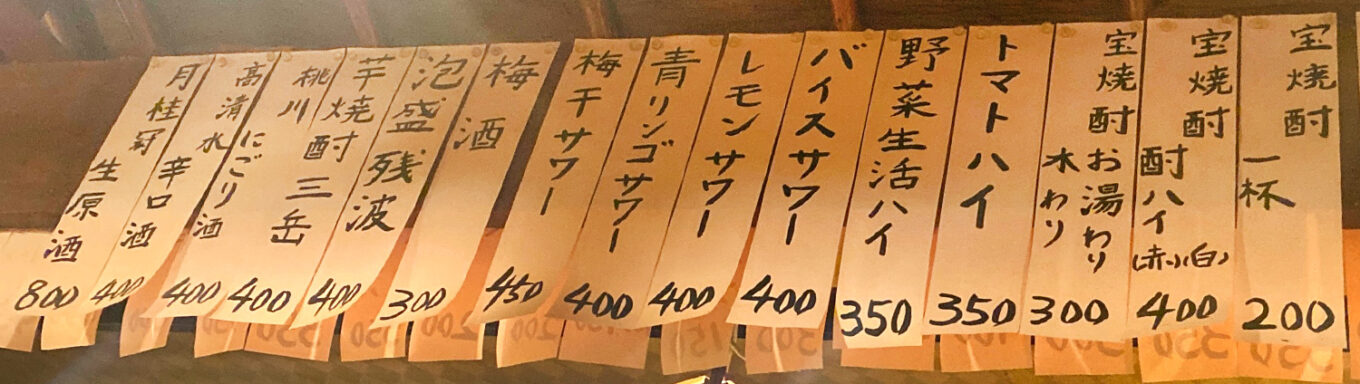 宝焼酎 一杯 200
宝焼酎 酎ハイ(赤)(白) 400
宝焼酎 お湯わり
水わり 300
トマトハイ 350
野菜生活ハイ 350
バイスサワー 400
レモンサワー 400
青リンゴサワー 400
梅干サワー 400
梅酒 450
泡盛 残波 300
芋焼酎 三岳 400
桃川 にごり酒 400
高清水 辛口酒 400
月桂冠 生原酒 800